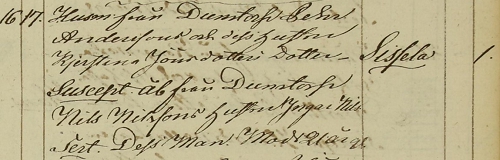 16 17. Husm från Dumtorp Pehr
Andersons och dess hustru
Kjerstina Jönsdotters Dotter Sissela 1.
Suscept. ab från Dumtorp
Nils Nilssons hustru
Test. Dess Man.